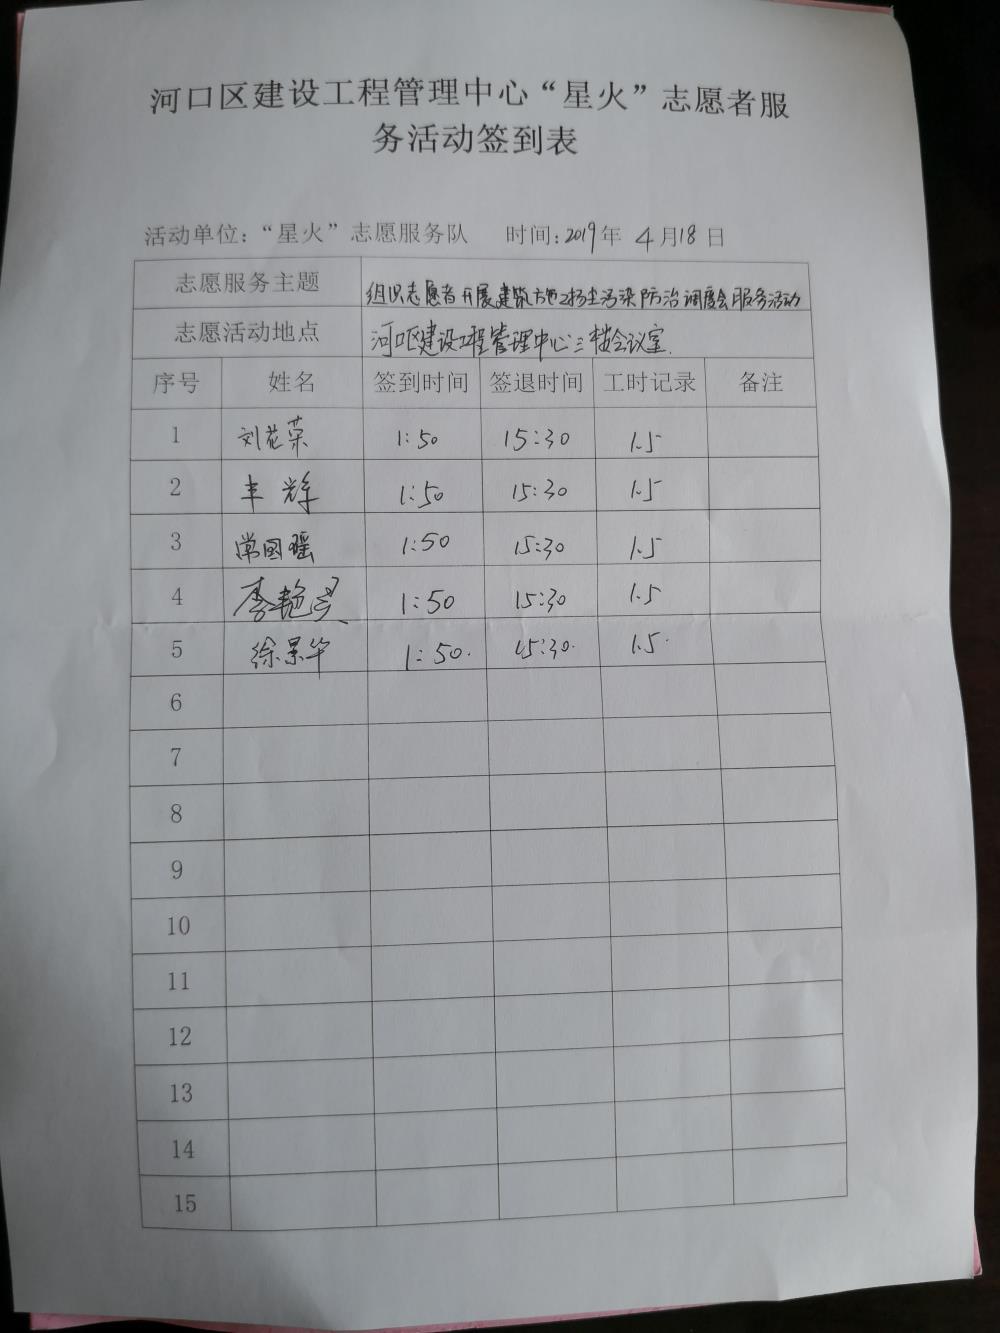 河口区建设工程管理中心“星火”志愿者服
务活动签到表
活动单位：“星火”志愿服务队 时间：2019年 4月18日
志愿服务主题 组织志愿者开展建筑施工扬尘污染防治调度会服务活动
志愿活动地点 河口区建设工程管理中心三楼会议室.
序号 姓名 签到时间 签退时间 工时记录 备注
1 刘花荣 1:50 15:30 1.5
2 丰辉 1:50 15:30 1.5
3 常国瑶 1:50 15:30 1.5
4 李艳灵 1:50 15:30 1.5
5 徐景华 1:50. 15:30. 1.5.
6
7
8
9
10
11
12
13
14
15